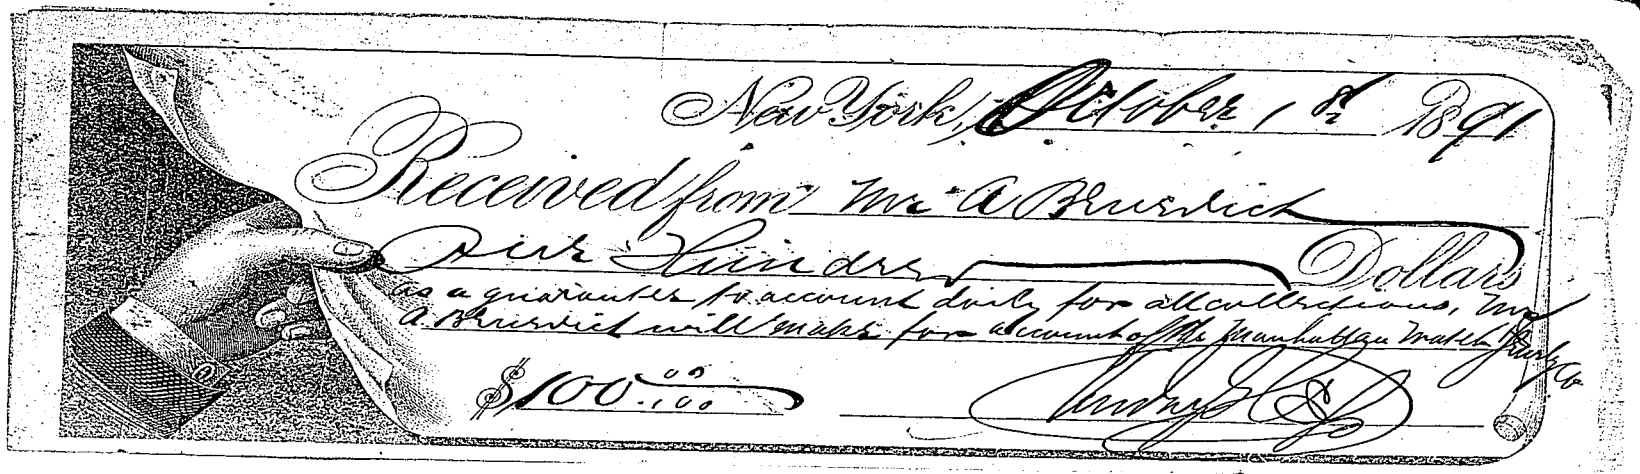 New York, October 1st 1891
Received from Mr A Benedict
One Hundred Dollars
as a guarantee to account daily for all collections, Mr
A Benedict will make for account of the Manhattan Watch Co
$100 00/100